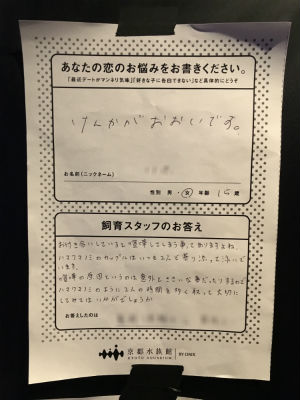 あなたの恋のお悩みをお書きください。
「最近デートがマンネリ気味」「好きな子に告白できない」など具体的にどうぞ
けんかがおおいです。
お名前(ニックネーム)
性別 男・女 年齢 15 歳
飼育スタッフのお答え
お付き合いしていると喧嘩してしまう事もありますよね。
ハマクマノミのカップルはいつも2人で寄り添って泳いで
います。
喧嘩の原因というのは意外とささいな事だったりするので
ハマクマノミのように2人の時間を多く取って大切に
してみてはいかがでしょうか
お答えしたのは
京都水族館
KYOTO AQUARIUM
BY ORIX